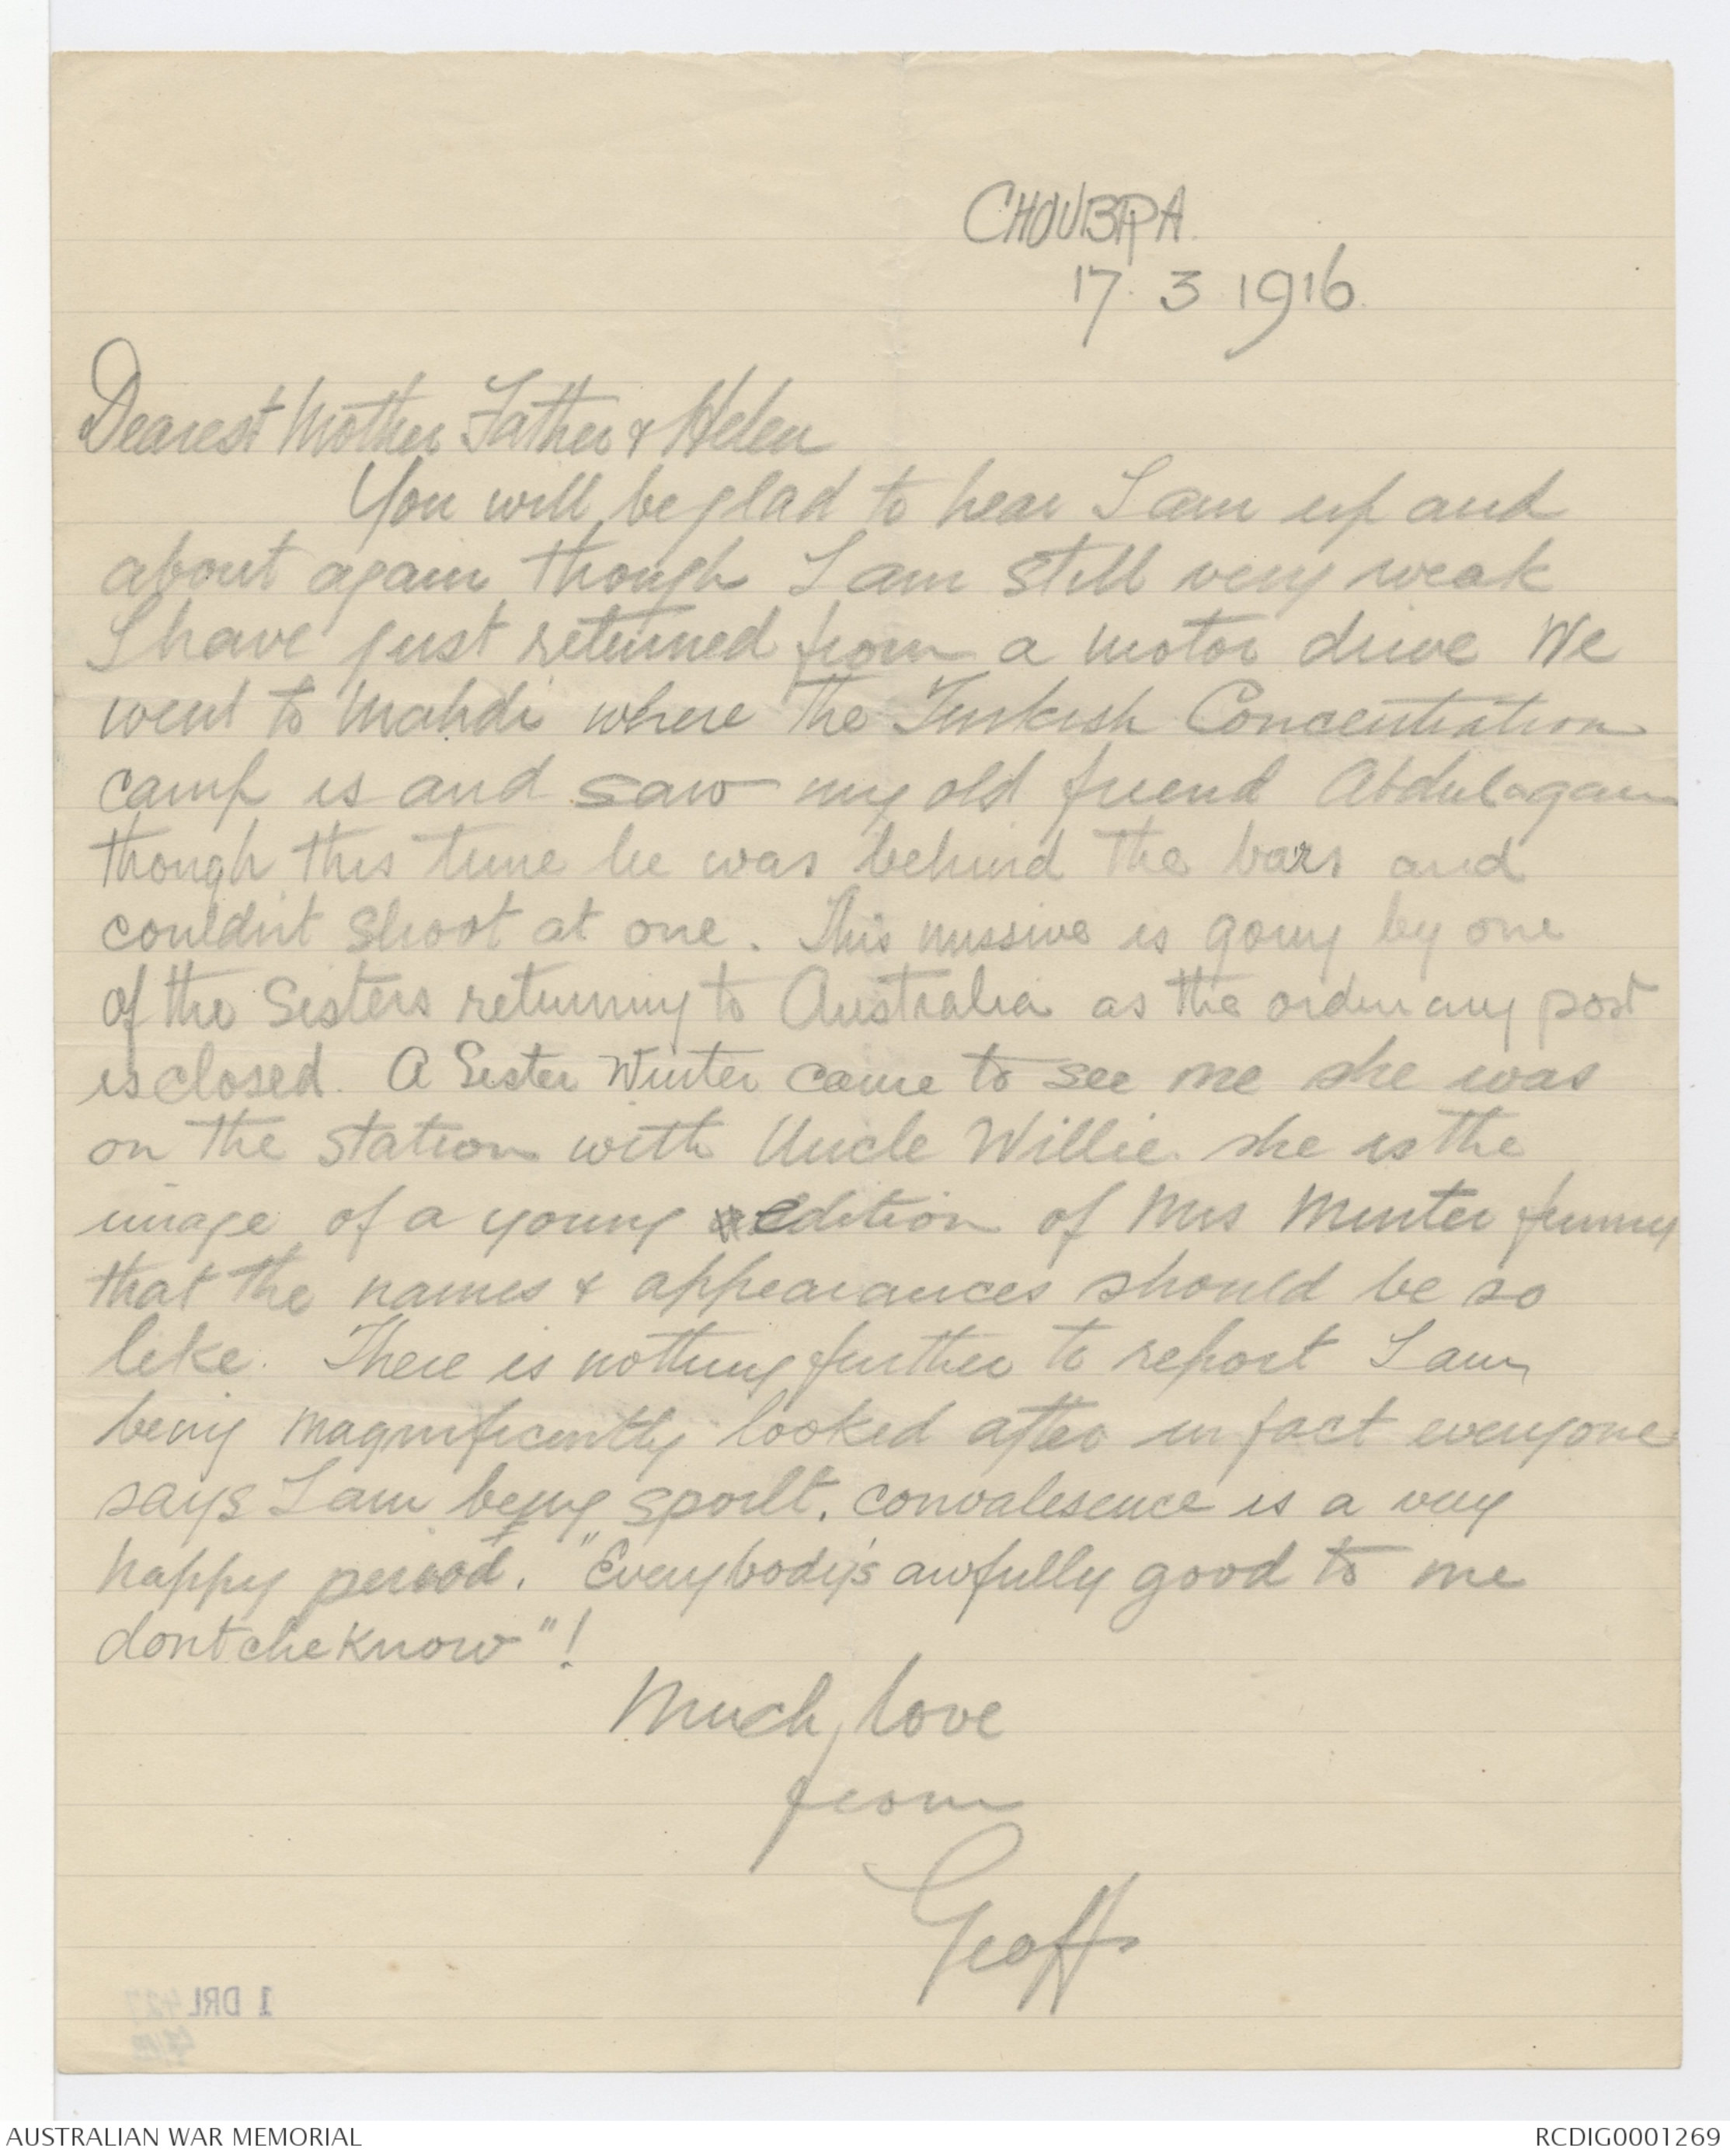 CHOUBRA.
17. 3 1916.
Dearest Mother Father & Helen
You will be glad to hear I am up and
about again though I am still very weak
I have just returned from a motor drive We
went to Mahdi where the Turkish Concentration
camp is and saw my old friend Abdul again
though this time he was behind the bars and
couldn't shoot at one. This missive is going by one
of the Sisters returning to Australia as the ordinary post
is closed. A Sister Winter came to see me she was
on the station with Uncle Willie. she is the
image of a young edition of Mrs Minter funny
that the names & appearances should be so
like. There is nothing further to report I am
being magnificently looked after in fact everyone
says I am being spoilt. convalesence is a very
happy period. "Everybody's awfully good to me
dontcheknow"!
Much love
from
Geoff
1 DRL 427
AUSTRALIAN WAR MEMORIAL
RCDIG0001269